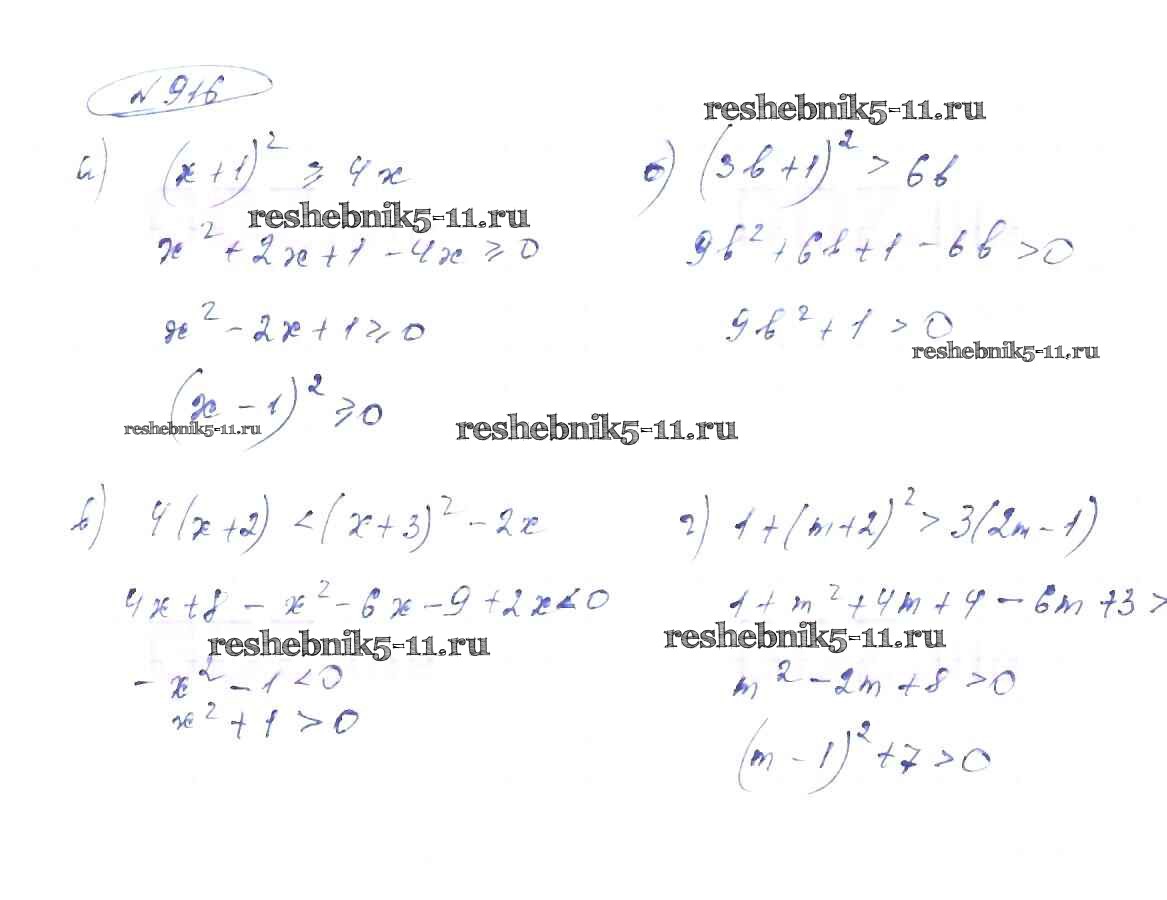 № 916
а) (x+1)² ≥ 4x
reshebnik5-11.ru
x² + 2x + 1 - 4x ≥ 0
x² - 2x + 1 ≥ 0
(x - 1)² ≥ 0
reshebnik5-11.ru
reshebnik5-11.ru
б) (3b+1)² > 6b
9b² + 6b + 1 - 6b > 0
9b² + 1 > 0
reshebnik5-11.ru
reshebnik5-11.ru
в) 4(x+2) < (x+3)² - 2x
4x + 8 - x² - 6x - 9 + 2x < 0
reshebnik5-11.ru
- x² - 1 < 0
x² + 1 > 0
г) 1 + (m+2)² > 3(2m-1)
1 + m² + 4m + 4 - 6m + 3 >
reshebnik5-11.ru
m² - 2m + 8 > 0
(m - 1)² + 7 > 0